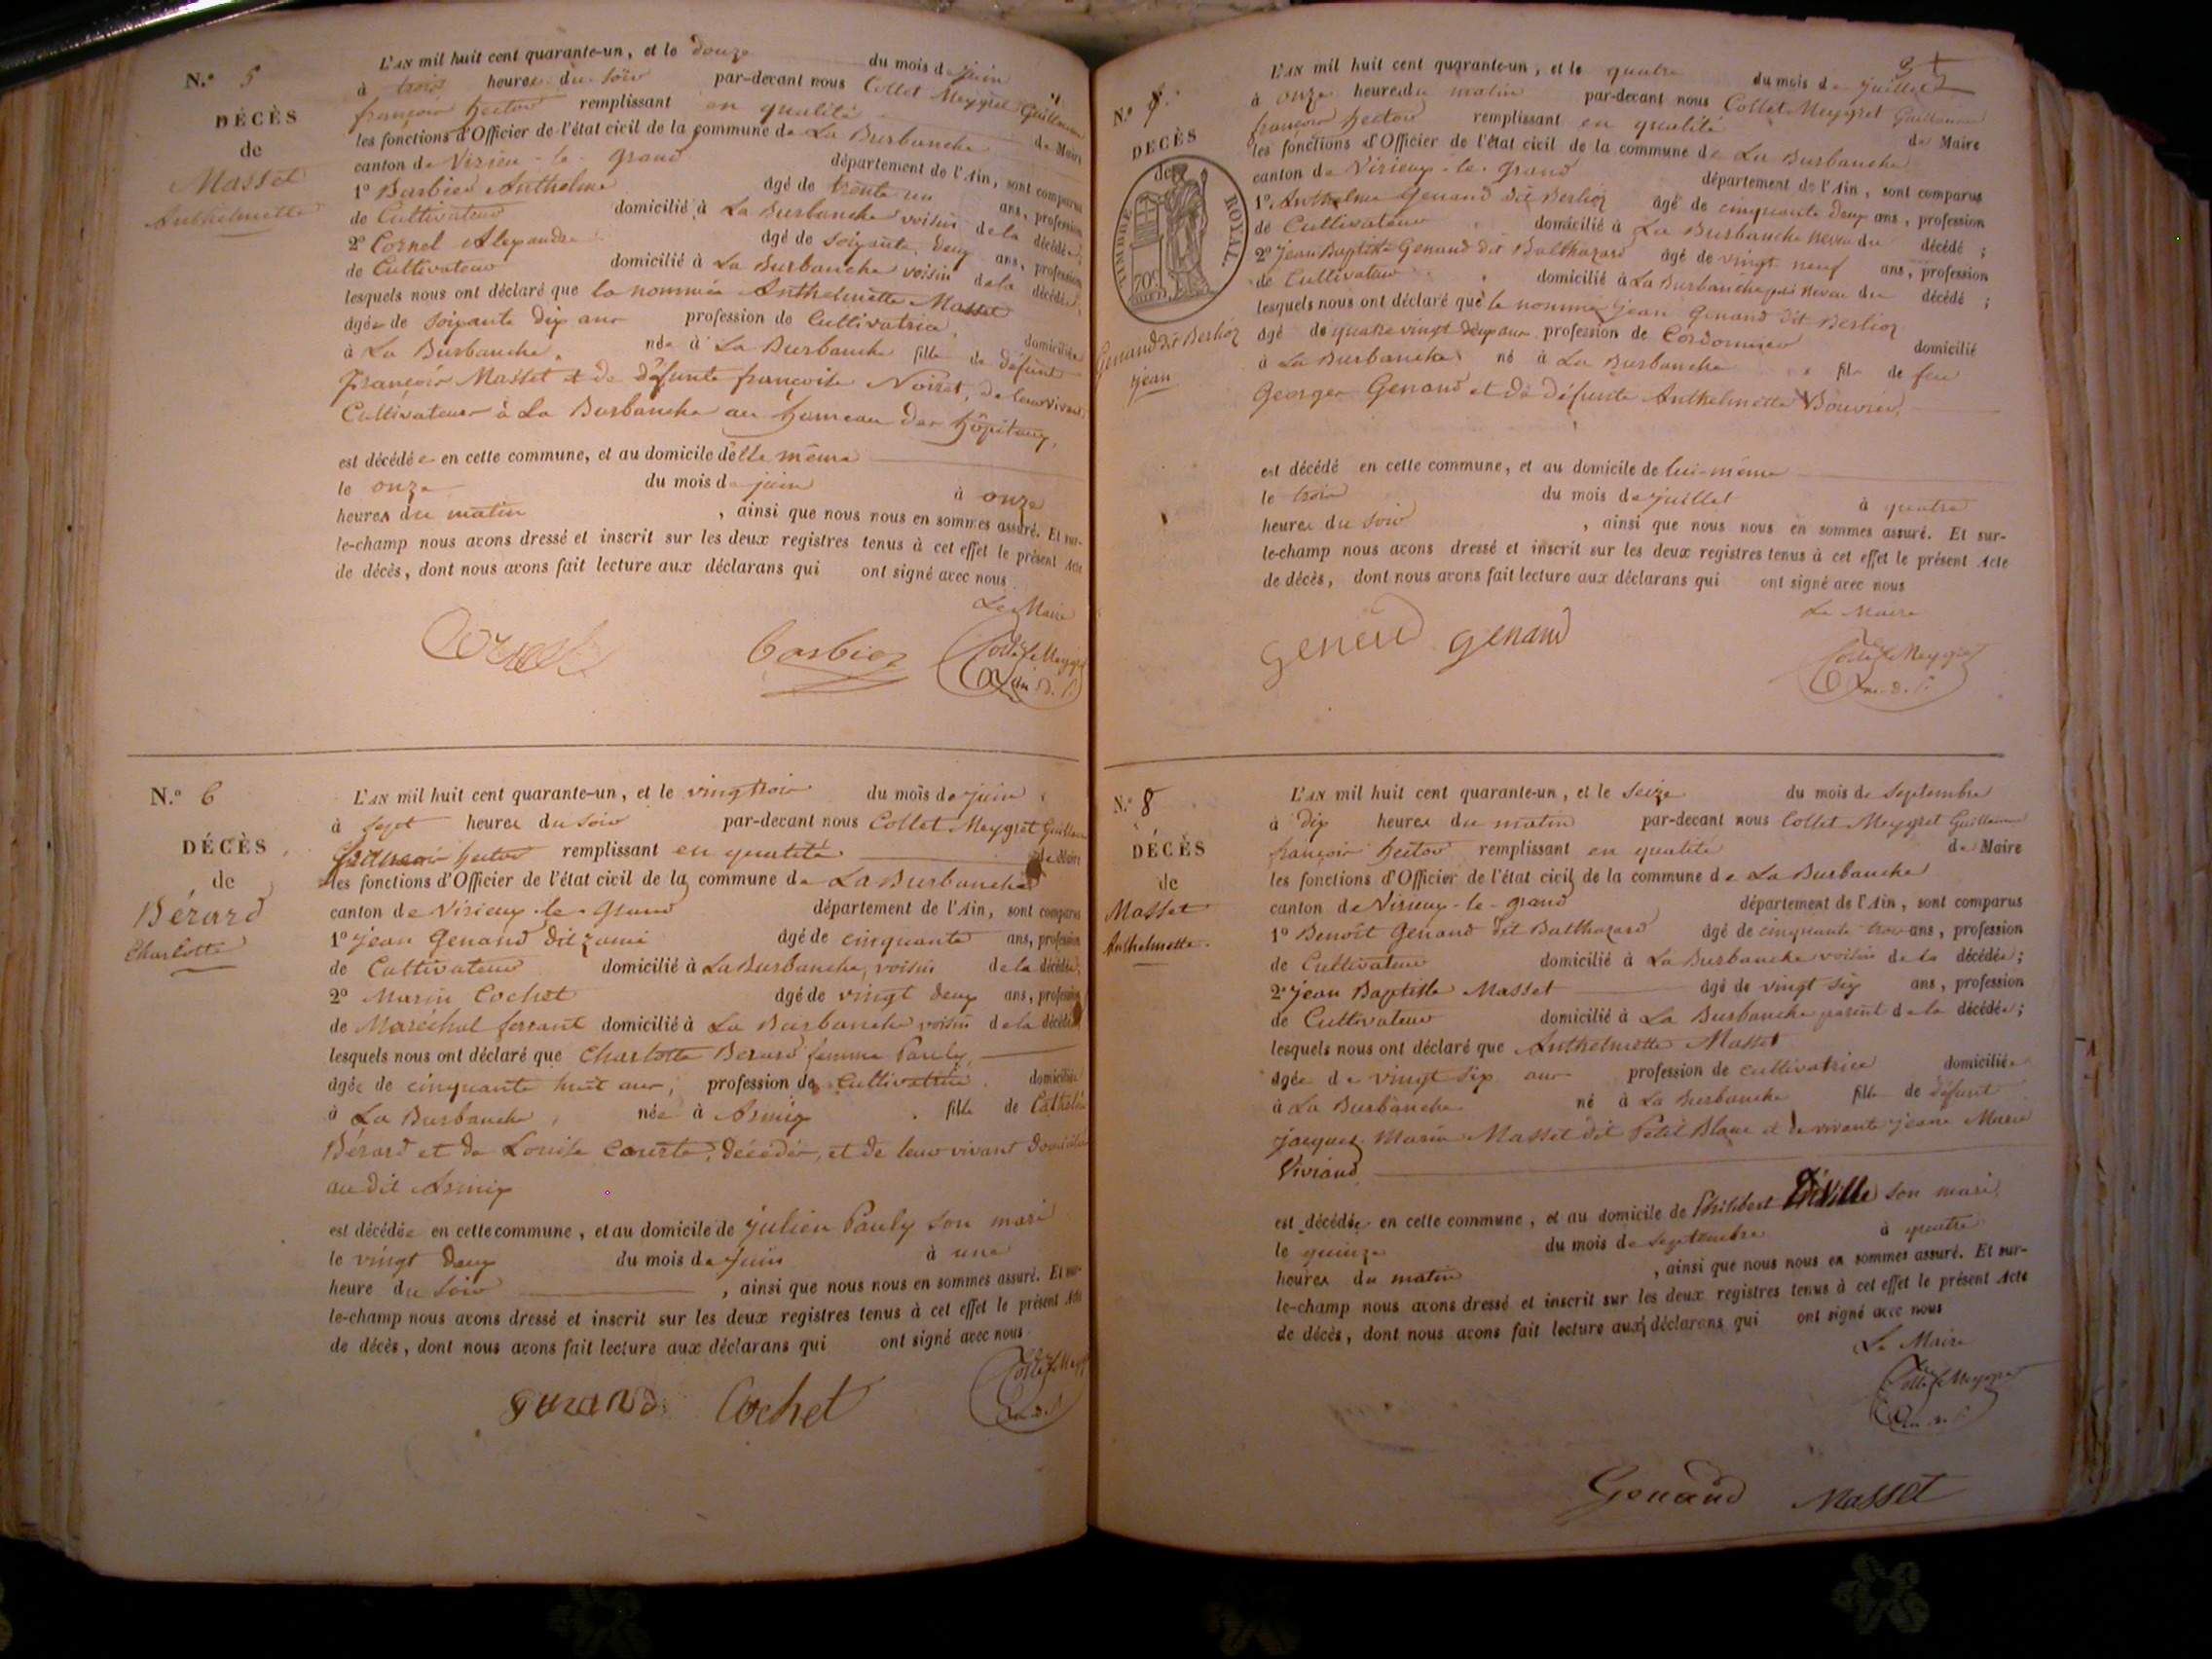 N.° 5
DÉCÈS
de
Masset
Anthelmette
L'AN mil huit cent quarante-un, et le douze du mois de juin
à trois heures du soir par-devant nous Collet Meygret Guillaume
françois hector remplissant en qualité de Maire
les fonctions d'Officier de l'état civil de la commune de La Burbanche
canton de Virieu-le-grand département de l'Ain, sont comparus
1° Barbier Anthelme âgé de trente un ans, profession
de Cultivateur domicilié à La Burbanche voisin de la décédée;
2° Cornel Alexandre âgé de soixante deux ans, profession
de Cultivateur domicilié à La Burbanche voisin de la décédée;
lesquels nous ont déclaré que la nommée Anthelmette Masset
âgée de soixante dix ans profession de Cultivatrice domiciliée
à La Burbanche, née à La Burbanche fille de défunt
françois Masset et de défunte françoise Noiret, de leur vivant
Cultivateurs à La Burbanche au hameau des hôpitaux,
est décédée en cette commune, et au domicile d'elle même
le onze du mois de juin à onze
heures du matin, ainsi que nous nous en sommes assuré. Et sur-
le-champ nous avons dressé et inscrit sur les deux registres tenus à cet effet le présent Acte
de décès, dont nous avons fait lecture aux déclarans qui ont signé avec nous
Le Maire
Cornel Barbier Collet Meygret
N.° 6
DÉCÈS
de
Bérard
Charlotte
L'AN mil huit cent quarante-un, et le vingt trois du mois de juin
à sept heures du soir par-devant nous Collet Meygret Guillaume
françois hector remplissant en qualité de Maire
les fonctions d'Officier de l'état civil de la commune de La Burbanche
canton de Virieux-le-grand département de l'Ain, sont comparus
1° jean Genand dit âgé de cinquante ans, profession
de Cultivateur domicilié à La Burbanche, voisin de la décédée;
2° Marin Cochet âgé de vingt deux ans, profession
de Maréchal ferrant domicilié à La Burbanche voisin de la décédée
lesquels nous ont déclaré que Charlotte Berard femme Pauly,
âgée de cinquante huit ans, profession de Cultivatrice domiciliée
à La Burbanche, née à Armix fille de
Bérard et de Louise Courte, décédés, et de leur vivant domiciliés
au dit Armix
est décédée en cette commune, et au domicile de julien Pauly son mari
le vingt deux du mois de Juin à une
heure du soir, ainsi que nous nous en sommes assuré. Et sur-
le-champ nous avons dressé et inscrit sur les deux registres tenus à cet effet le présent Acte
de décès, dont nous avons fait lecture aux déclarans qui ont signé avec nous
Cochet Collet Meygret
N.° 7
DÉCÈS
de
TIMBRE ROYAL
70c
Genand dit Berlioz
jean
L'AN mil huit cent quarante-un, et le quatre du mois de juillet
à onze heures du matin par-devant nous Collet Meygret Guillaume
françois hector remplissant en qualité de Maire
les fonctions d'Officier de l'état civil de la commune de La Burbanche
canton de Virieux-le-Grand département de l'Ain, sont comparus
1° Anthelme Genand dit Berlioz âgé de cinquante deux ans, profession
de Cultivateur domicilié à La Burbanche neveu du décédé;
2° jean Baptiste Genand dit Balthazard âgé de vingt neuf ans, profession
de Cultivateur domicilié à La Burbanche neveu du décédé;
lesquels nous ont déclaré que le nommé jean Genand dit Berlioz
âgé de quatre vingt deux ans profession de Cordonnier domicilié
à La Burbanche né à La Burbanche fils de feu
George Genand et de défunte Anthelmette Bouvier,
est décédé en cette commune, et au domicile de lui-même
le trois du mois de juillet à quatre
heures du soir, ainsi que nous nous en sommes assuré. Et sur-
le-champ nous avons dressé et inscrit sur les deux registres tenus à cet effet le présent Acte
de décès, dont nous avons fait lecture aux déclarans qui ont signé avec nous
Le Maire
genand Collet Meygret
N.° 8
DÉCÈS
de
Masset
Anthelmette.
L'AN mil huit cent quarante-un, et le seize du mois de septembre
à dix heures du matin par-devant nous Collet Meygret Guillaume
françois hector remplissant en qualité de Maire
les fonctions d'Officier de l'état civil de la commune de La Burbanche
canton de Virieux-le-grand département de l'Ain, sont comparus
1° Benoît Genand dit Balthazard âgé de cinquante trois ans, profession
de Cultivateur domicilié à La Burbanche voisin de la décédée;
2° jean Baptiste Masset âgé de vingt six ans, profession
de Cultivateur domicilié à La Burbanche parent de la décédée;
lesquels nous ont déclaré que Anthelmette Masset
âgée de vingt six ans profession de cultivatrice domiciliée
à La Burbanche né à La Burbanche fille de défunt
jacques Marin Masset dit Petit Blanc et de vivante jeane Marie
Viviand,
est décédée en cette commune, et au domicile de Philibert son mari,
le quinze du mois de septembre à quatre
heures du matin, ainsi que nous nous en sommes assuré. Et sur-
le-champ nous avons dressé et inscrit sur les deux registres tenus à cet effet le présent Acte
de décès, dont nous avons fait lecture aux déclarans qui ont signé avec nous
Le Maire
Collet Meygret
Genand Masset